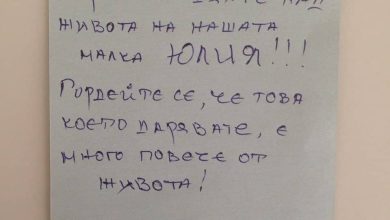 живота на нашата
малка ЮЛИЯ!!!
Гордейте се, че това
което дарявате, е
много повече от
живота!